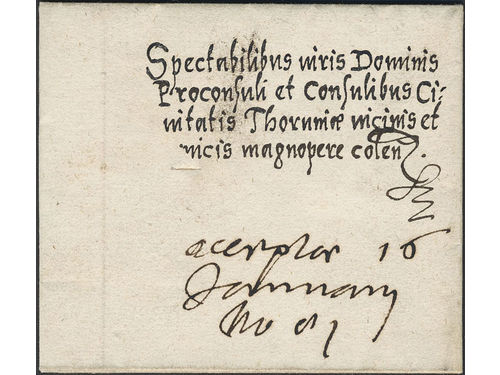 Spectabilibus viris Dominis
Proconsuli et Consulibus Ci-
uitatis Thoruniæ uicinis et
nicis magnopere colen
16
January